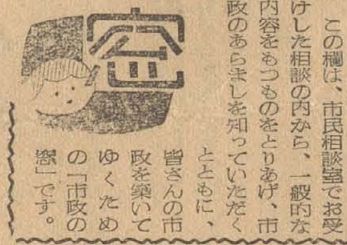 窓
この欄は、市民相談室でお受
けした相談の内から、一般的な
内容をもつものをとりあげ、市
政のあらましを知っていただく
とともに、
皆さんの市
政を築いて
ゆくため
の「市政の
窓」です。